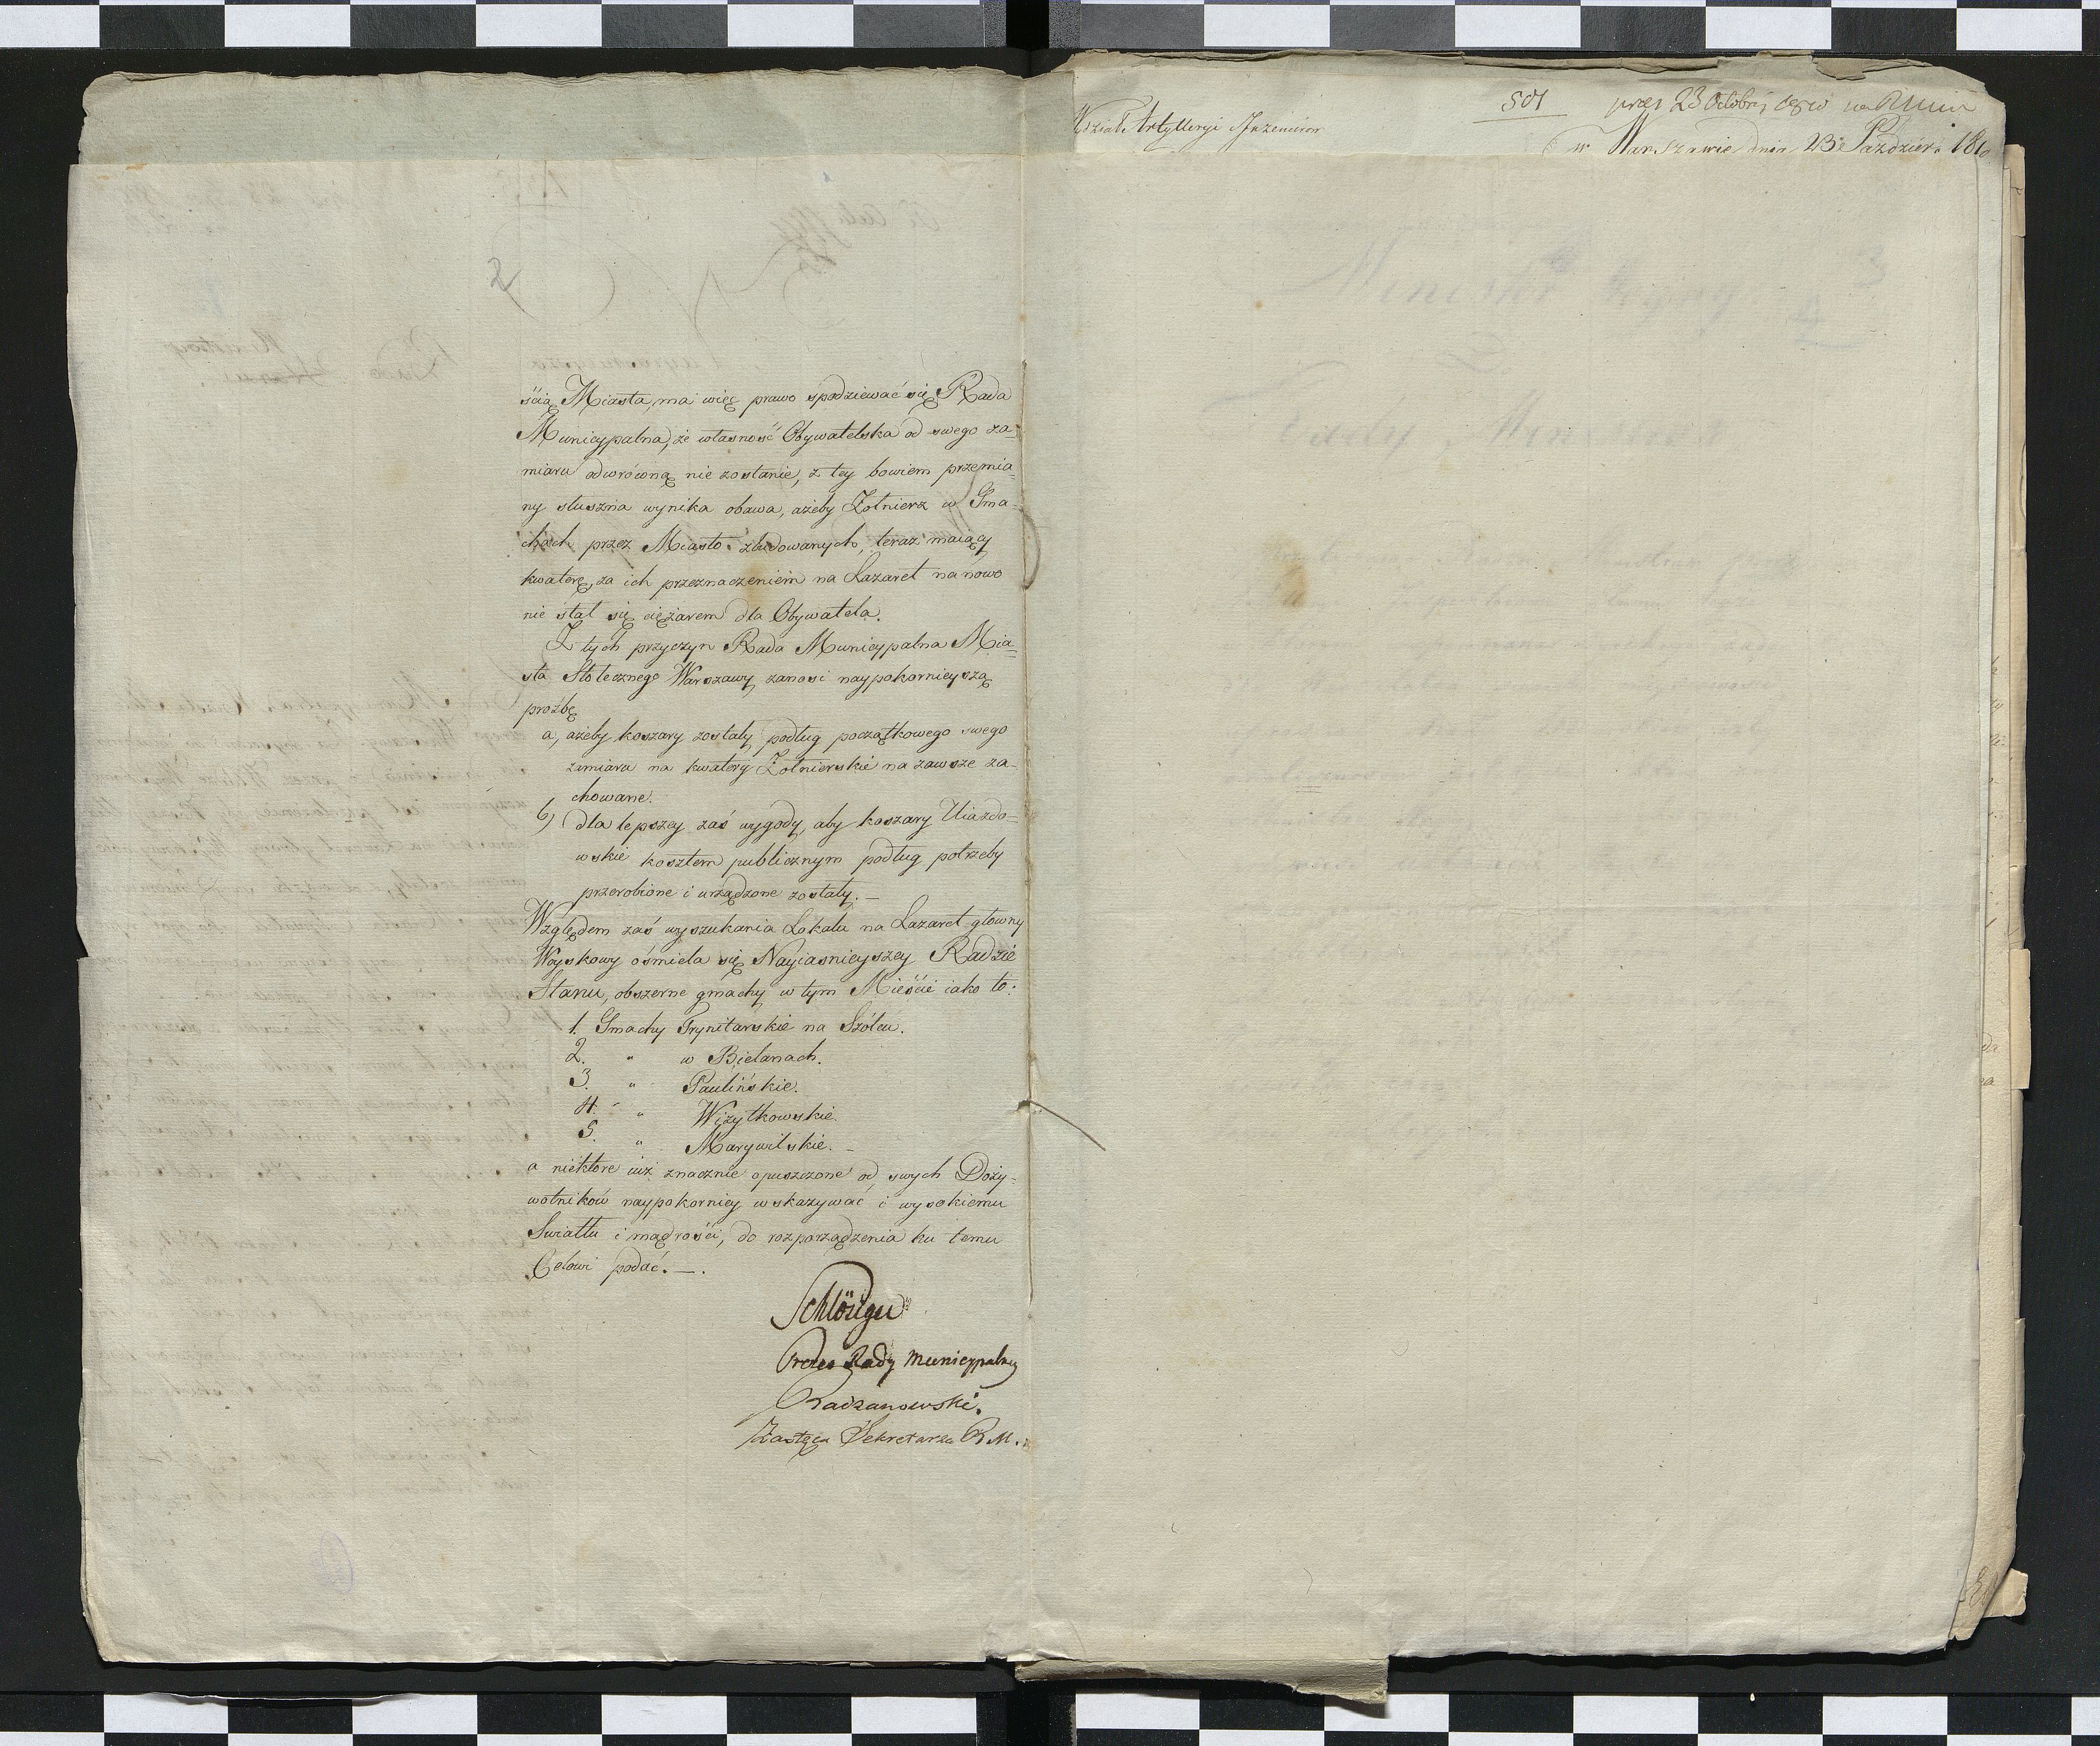 2
ścią Miasta, ma więc prawo spodziewać się Rada
Municypalna, że własność Obywatelska od swego za=
miaru odwróconą nie zostanie, z tey bowiem przemia=
ny słuszna wynika obawa, ażeby Zołnierz w Gma=
chach przez Miasto zbudowanych, teraz maiący
kwaterę, za ich przeznaczeniem na Lazaret na nowo
nie stał się ciężarem dla Obywatela.
Z tych przyczyn Rada Municypalna Mia=
sta Stołecznego Warszawy zanosi naypokornieyszą
prożbę
a, ażeby koszary zostały podług początkowego swego
zamiaru na kwatery Zołnierskie na zawsze za=
chowane.
b) dla lepszey zaś wygody, aby koszary Uiazdo=
wskie kosztem publicznym podług potrzeby
przerobione i urządzone zostały. —
Względem zaś wyszukania Lokalu na Lazaret głowny
Woyskowy ośmiela się Nayiasnieyszey Radzie
Stanu, obszerne gmachy w tym Mieście iako to:
1. Gmachy Trynitarskie na Szólcu.
2. " w Bielanach.
3. " Paulińskie.
4. " Wizytkowskie.
5. " Marywilskie. —
a niektore iuż znacznie opuszczone od swych Doży=
wotników naypokorniey wskazywać i wysokiemu
Swiatłu i mądrości, do rozporządzenia ku temu
Celowi podać. —.
Prezes Rady Municypalney
Radzanowski.
Zastęca Sekretarza R. M.
Wydział Artylleryi Inzenierow
501
23 Octobris
w Warszawie dnia 23 Paździer: 1810